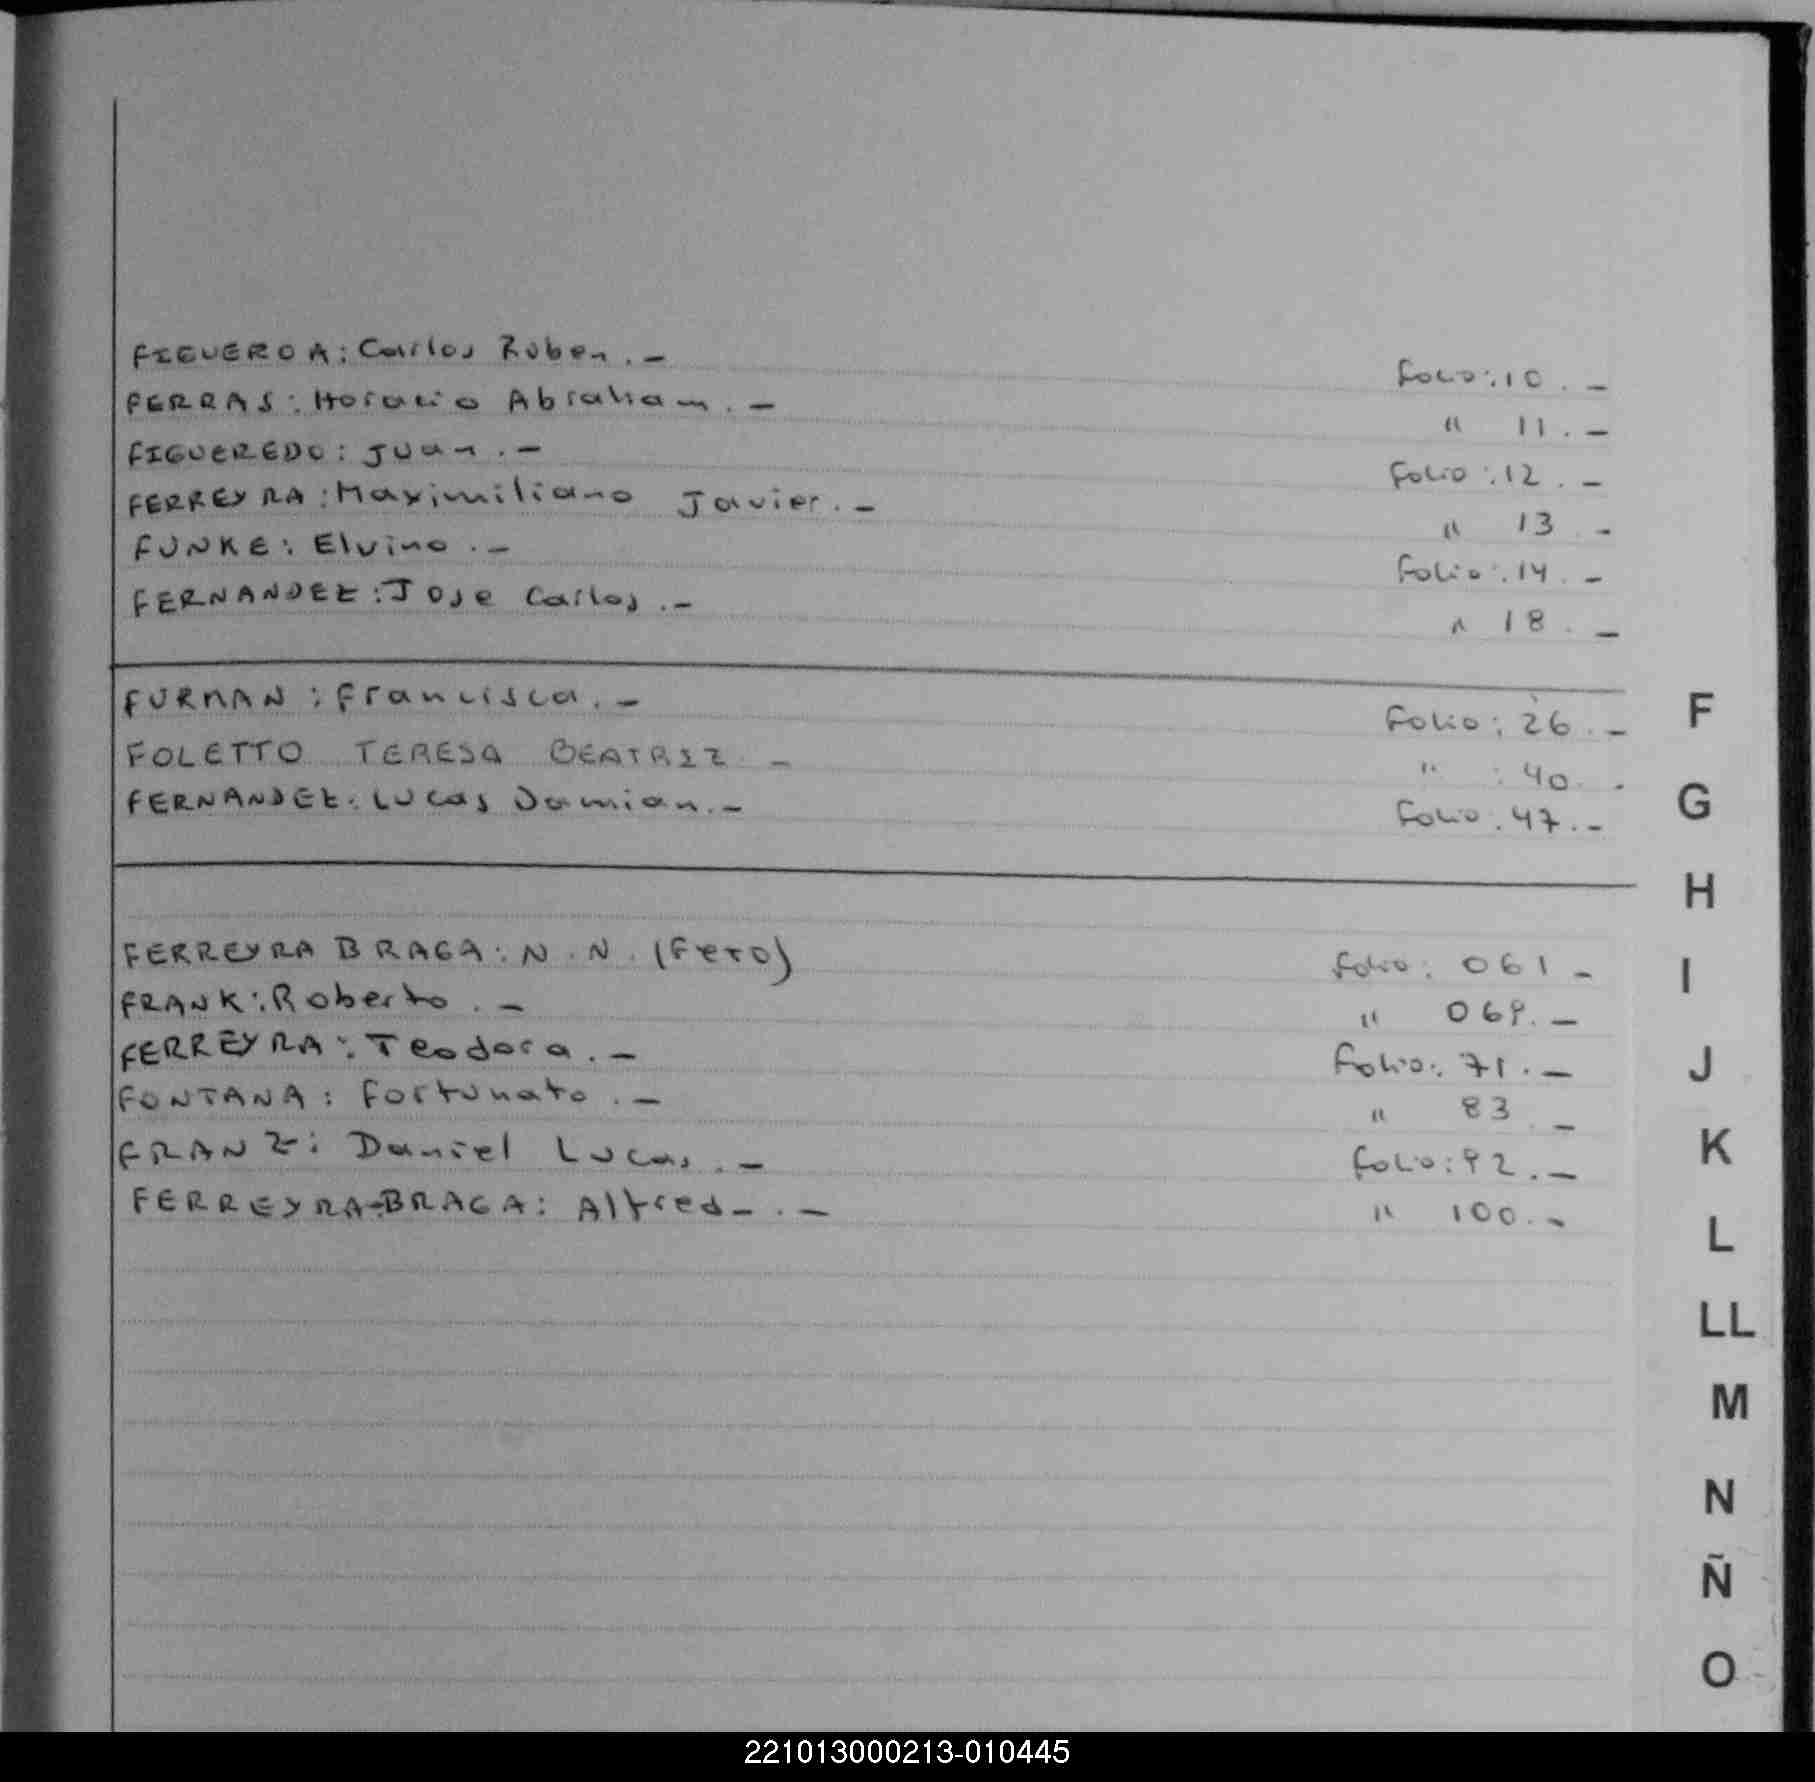 FIGUEROA: Carlos Ruben. — Folio: 10. —
FERRAS: Horacio Abraham. — " 11. —
FIGUEREDO: Juan. — Folio: 12. —
FERREYRA: Maximiliano Javier. — " 13 —
FUNKE: Elvino. — Folio: 14. —
FERNANDEZ: Jose Carlos. — " 18. —
FURMAN: Francisca. — Folio: 26. —
FOLETTO TERESA BEATRIZ. — " : 40. -
FERNANDEZ: Lucas Damian. — Folio: 47. -
FERREYRA BRAGA: N. N. (Feto) Folio: 061 -
FRANK: Roberto. — " 069. —
FERREYRA: Teodora. — Folio: 71. —
FONTANA: Fortunato. — " 83 —
FRANZ: Daniel Lucas. — Folio: 92. —
FERREYRA-BRAGA: Alfredo. — " 100. -
F
G
H
I
J
K
L
LL
M
N
Ñ
O
221013000213-010445